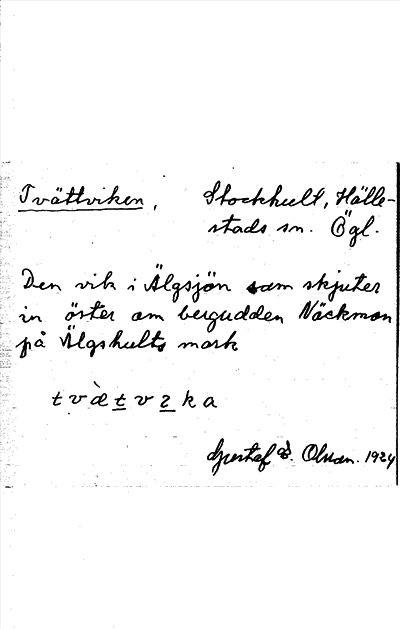 Tvättviken, Stockhult, Hälle-
stads sn. Ögl.
Den vik i Älgsjön som skjuter
in öster om bergudden Näckmon
på Älgshults mark
t v æ̀ t v ɿ k a
Gustaf Olsson. 1924